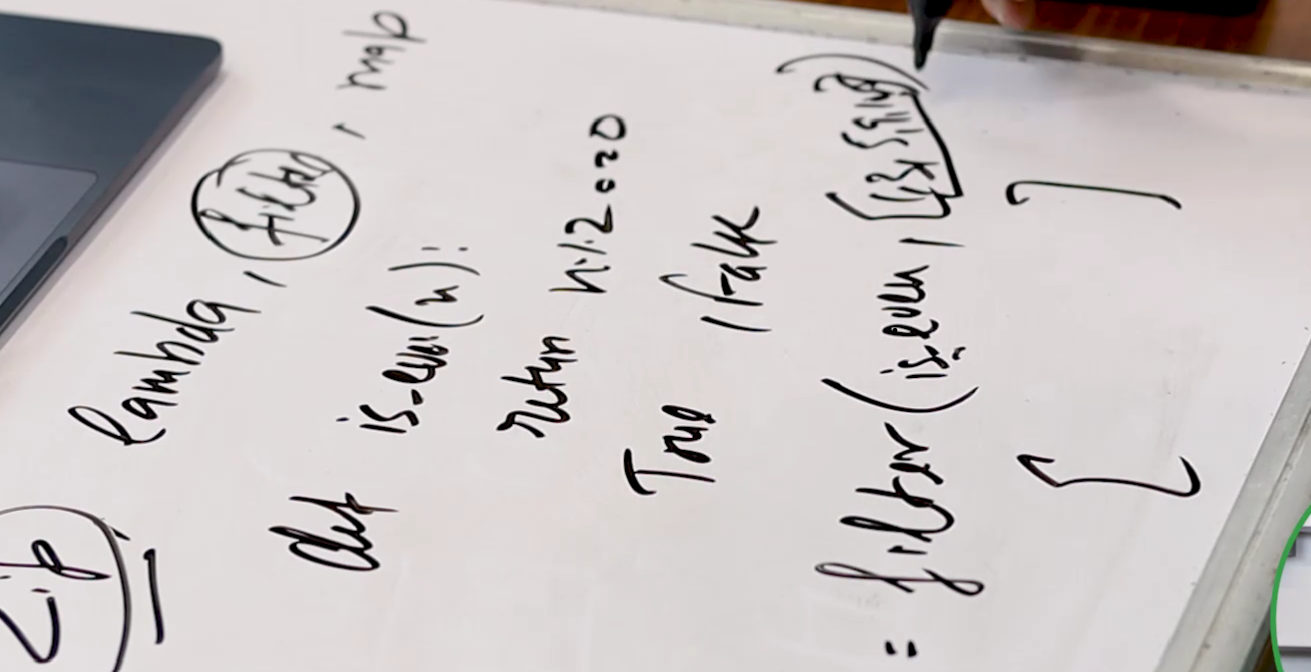 Zip
lambda, filter, map
def is_even(n):
return n%2==0
True / False
= filter(is_even, [
[ ]